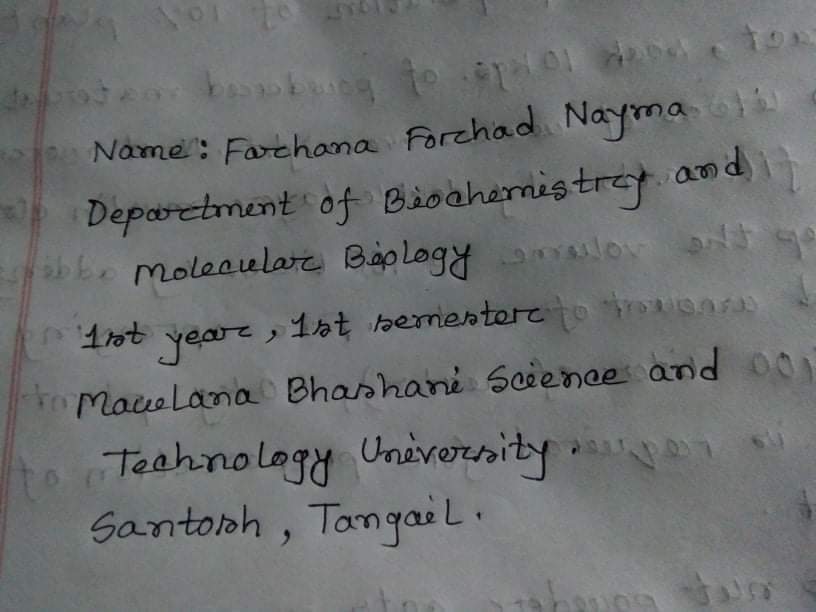 Name: Farhana Forhad Nayma
Department of Biochemistry and
Molecular Biology
1st year, 1st semester
Maulana Bhashani Science and
Technology University.
Santosh, Tangail.